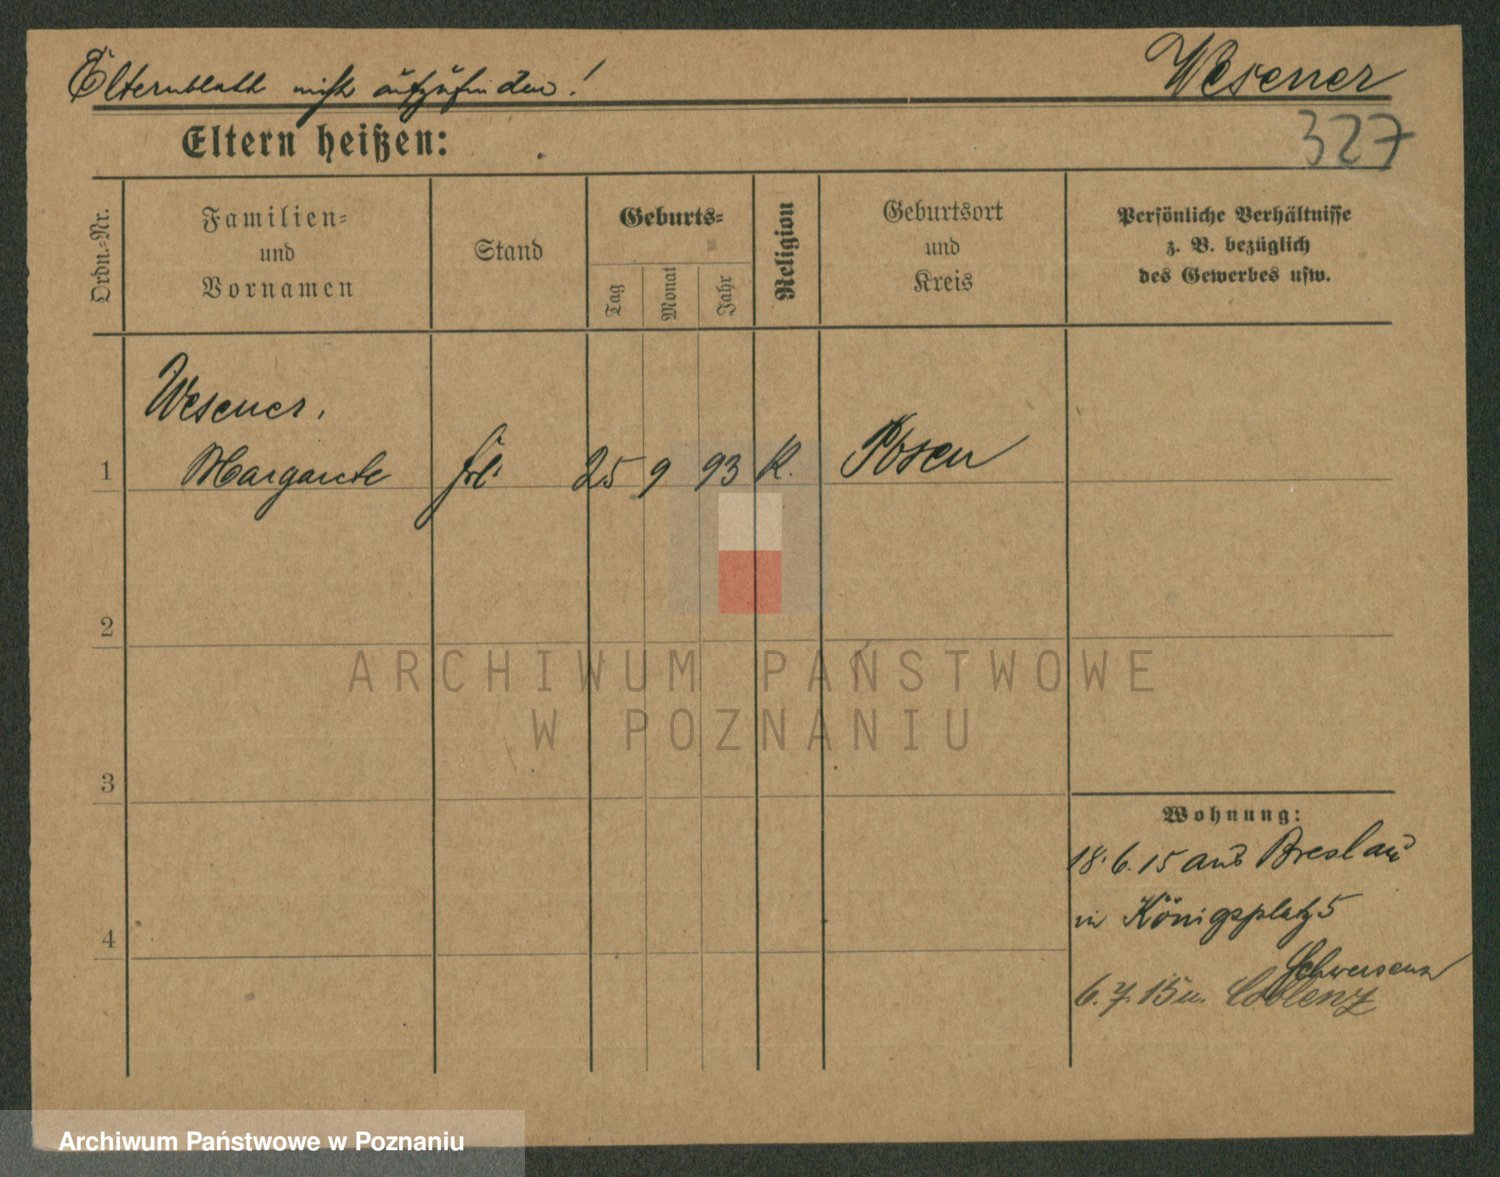 Elternblatt nicht aufzufinden!
Wesener
327
Eltern heißen:
Ordn.-Nr.
Familien-
und
Vornamen
Stand
Geburts-
Tag
Monat
Jahr
Religion
Geburtsort
und
Kreis
Persönliche Verhältnisse
z. B. bezüglich
des Gewerbes usw.
Wesener,
1 Margarete Frl. 25 9 93 K. Posen
2
ARCHIWUM PAŃSTWOWE
W POZNANIU
3
Wohnung:
18.6.15 aus Breslau
4
in Königsplatz 5
Schwersenz
6.7.15 n. Coblenz
Archiwum Państwowe w Poznaniu